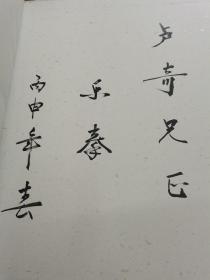 卢奇兄正
乐秦
丙申年春